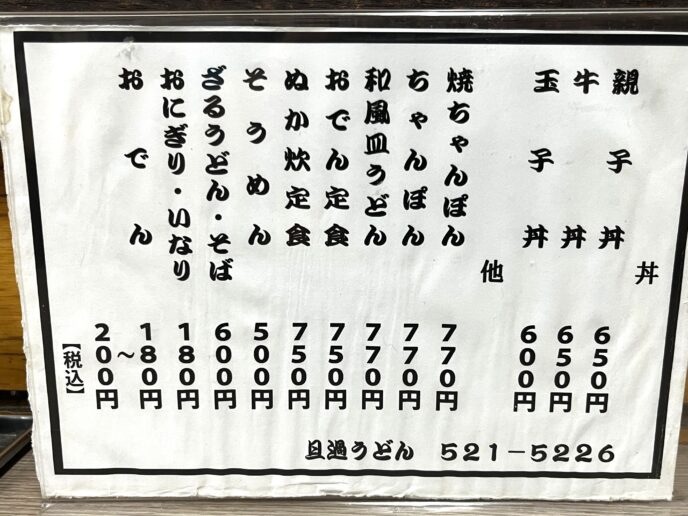 丼
親子丼 650円
牛丼 650円
玉子丼 600円
他
焼ちゃんぽん 770円
ちゃんぽん 770円
和風皿うどん 770円
おでん定食 750円
ぬか炊定食 750円
そうめん 500円
ざるうどん・そば 600円
おにぎり・いなり 180円
おでん 180円~200円
【税込】
旦過うどん 521-5226